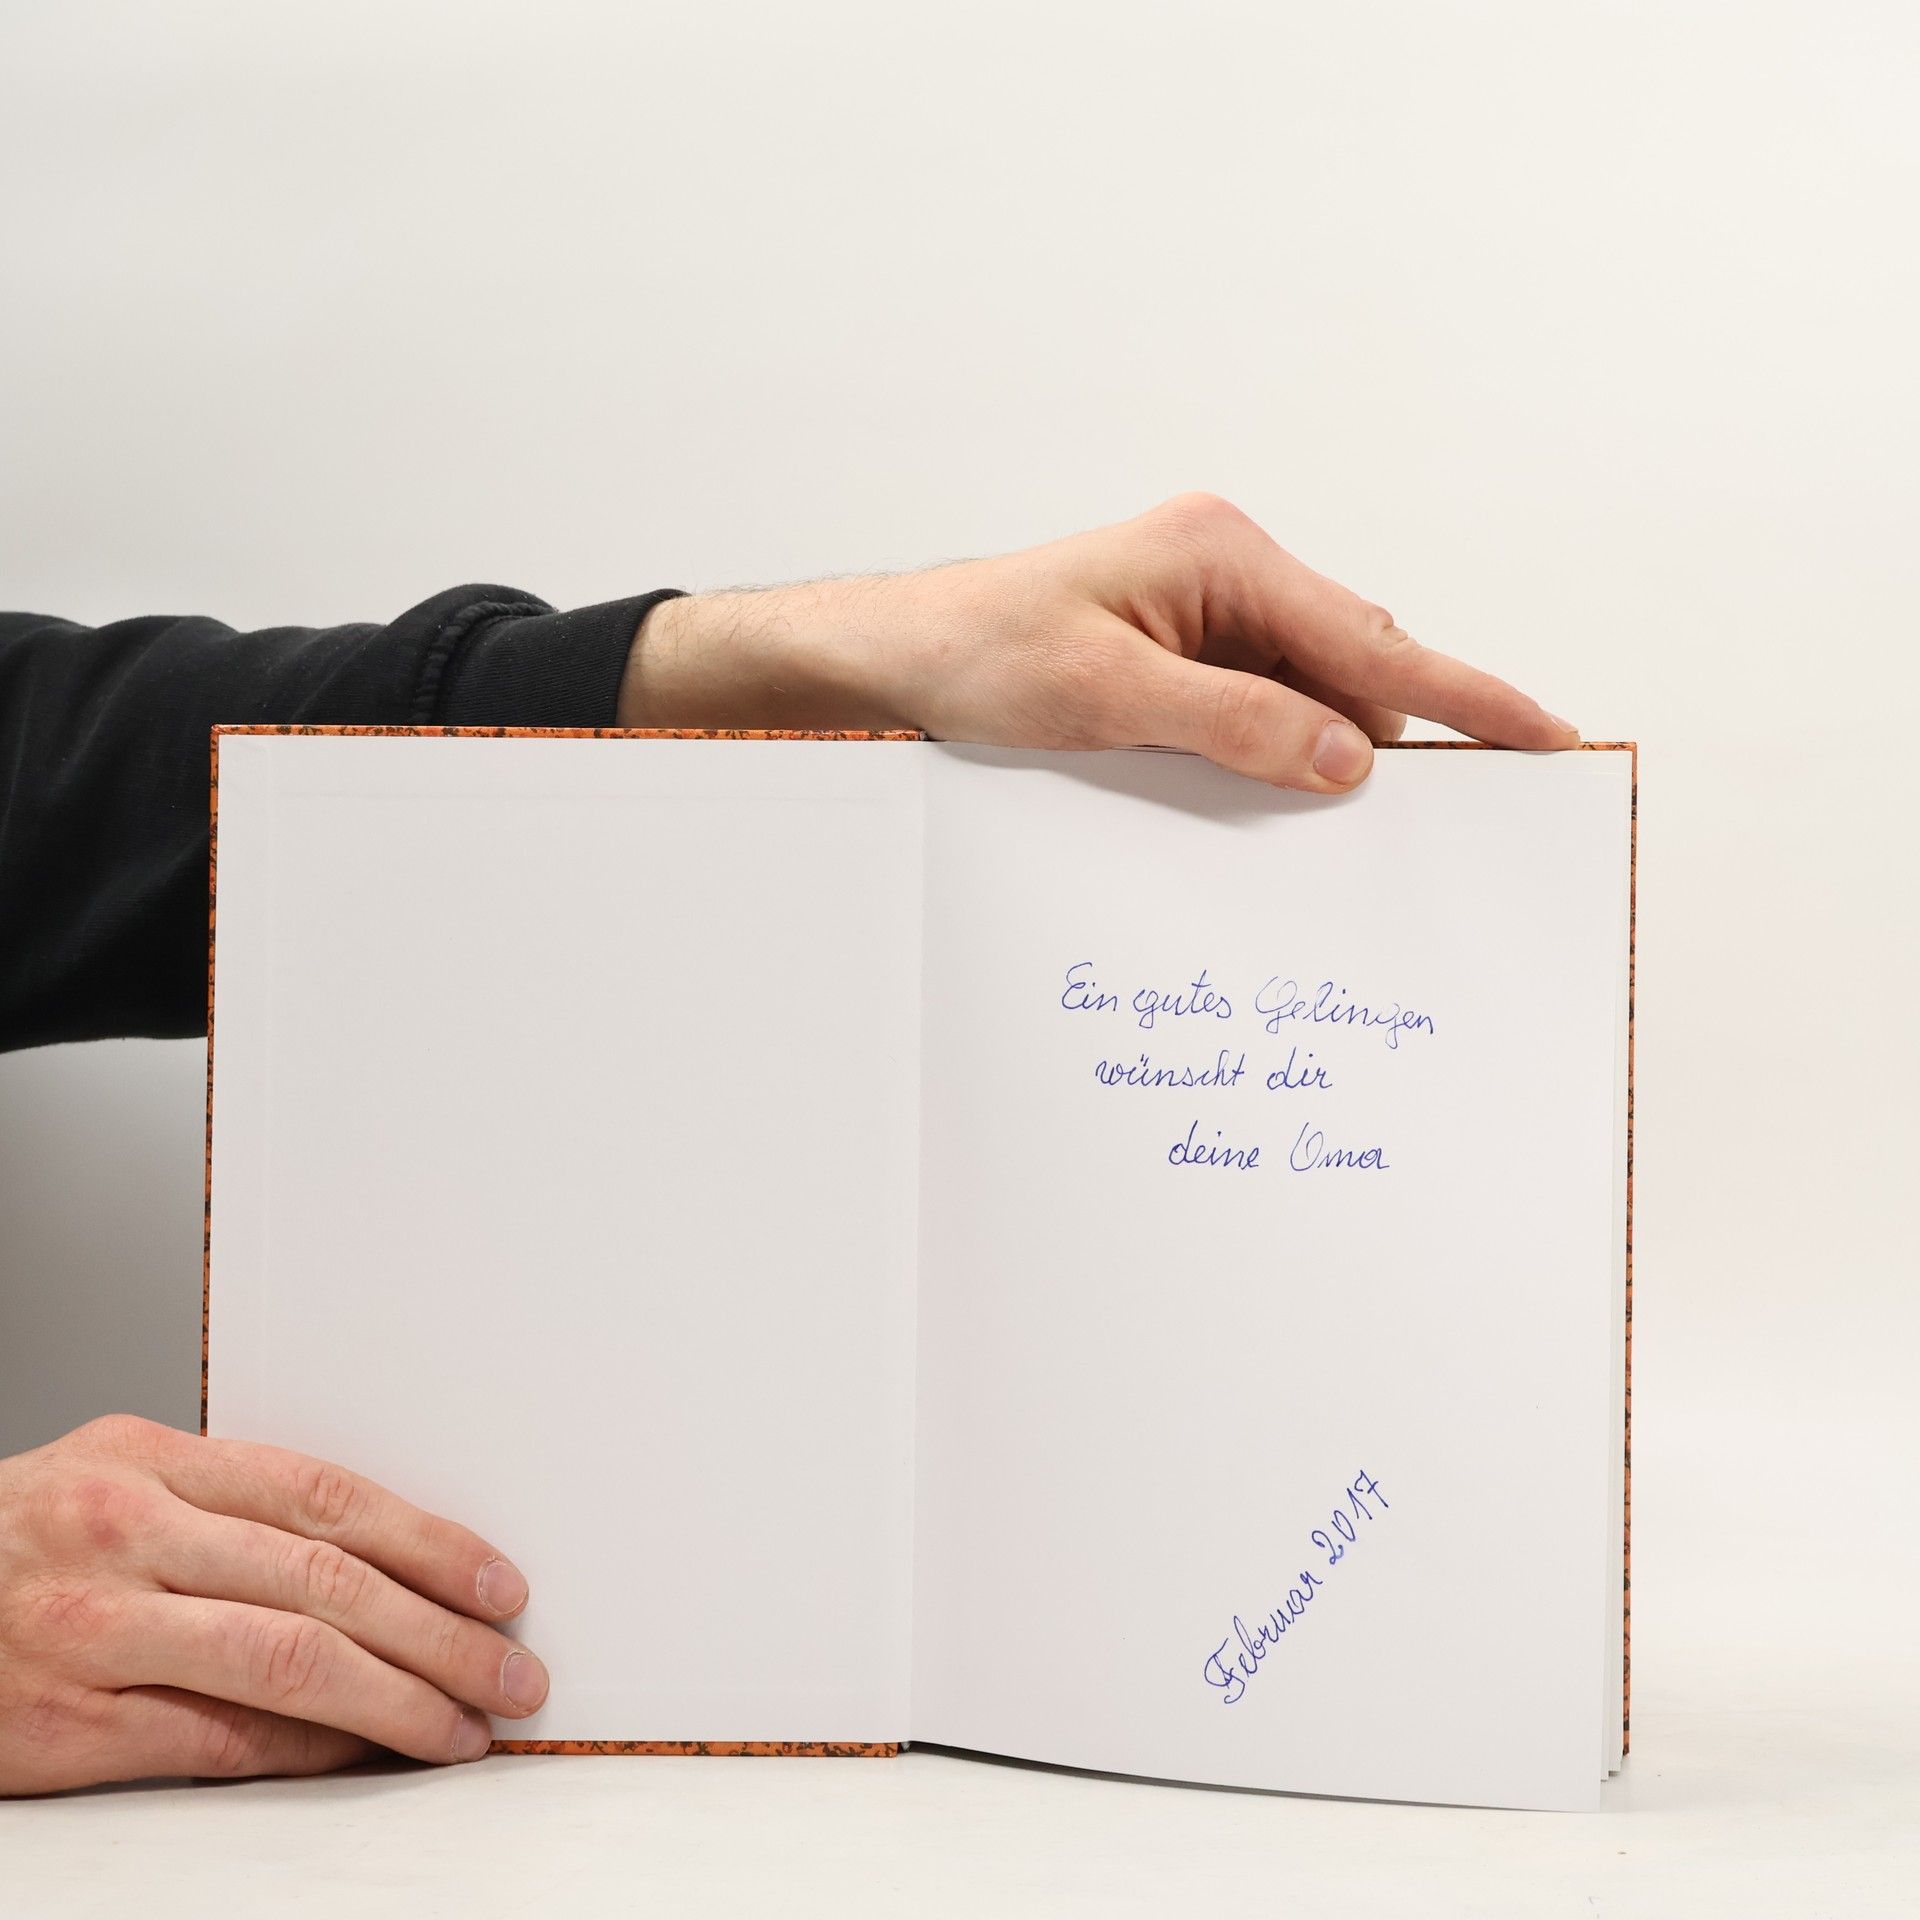 Ein gutes Gelingen
wünscht dir
deine Oma
Februar 2017